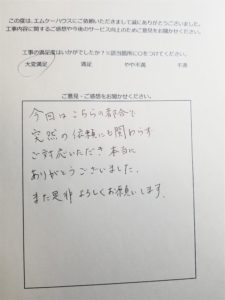 この度は、エムケーハウスにご依頼いただきまして誠にありがとうございました。
工事内容に関するご感想や今後のサービス向上のためご意見をお聞かせください。
工事の満足度はいかがでしたか？※該当箇所に○をつけてください。
大変満足 満足 やや不満 不満
ご意見・ご感想をお聞かせください。
今回はこちらの都合で
突然の依頼にも関わらず
ご対応いただき本当に
ありがとうございました。
また是非よろしくお願いします。